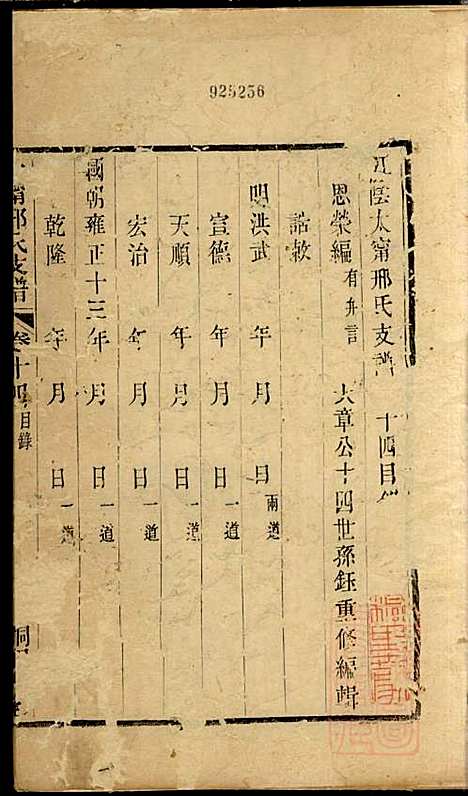 925256
江陰太甯邢氏支譜 十四目
恩榮編 有弁言 大章公十四世孫鈺重修編輯
誥敕
明洪武 年 月 日 兩道
宣德 年 月 日 一道
天順 年 月 日 一道
宏治 年 月 日 一道
國朝雍正十三年 月 日 一道
乾隆 年 月 日 一道
甯邢氏支譜 卷十四 目錄